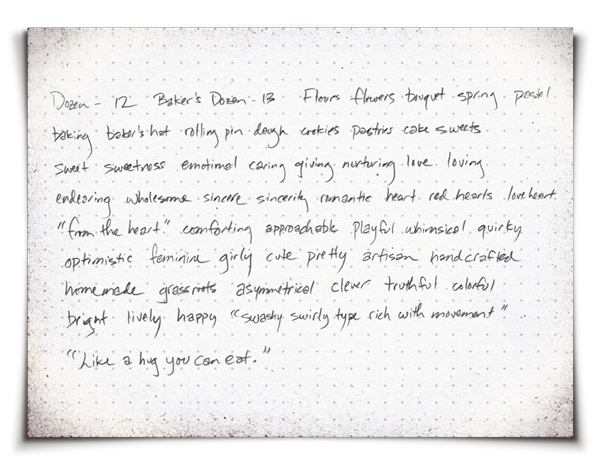 Dozen - 12 Baker's Dozen - 13 Flours flowers bouquet spring pastel
baking baker's hat rolling pin dough cookies pastries cake sweets
sweet sweetness emotional caring giving nurturing love loving
endearing wholesome sincere sincerity romantic heart red hearts love heart
"from the heart" comforting approachable playful whimsical quirky
optimistic feminine girly cute pretty artisan handcrafted
homemade grassroots asymmetrical clever truthful colorful
bright lively happy "swashy swirly type rich with movement"
"Like a hug you can eat."